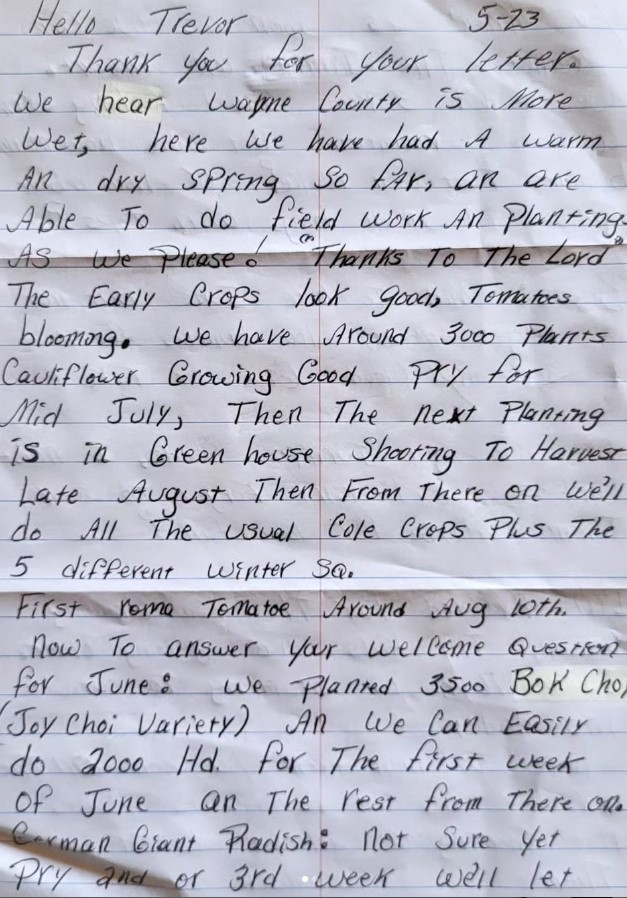 Hello Trevor 5-23
Thank you for your letter.
We hear Wayne County is More
Wet, here we have had A warm
An dry spring so far, an are
Able To do field work An Planting
As we Please! Thanks To The Lord
The Early Crops look good, Tomatoes
blooming. We have Around 3000 Plants
Cauliflower Growing Good Pry for
Mid July, Then The next Planting
is in Green house Shooting To Harvest
Late August Then From There on we'll
do All The usual Cole Crops Plus The
5 different winter Sq.
First roma Tomatoe Around Aug 10th.
Now To answer your welcome Question
for June: We Planted 3500 Bok Choy
(Joy Choi Variety) An We Can Easily
do 2000 Hd. for The first week
of June an The rest from There on.
German Giant Radish: not sure yet
Pry 2nd or 3rd week we'll let